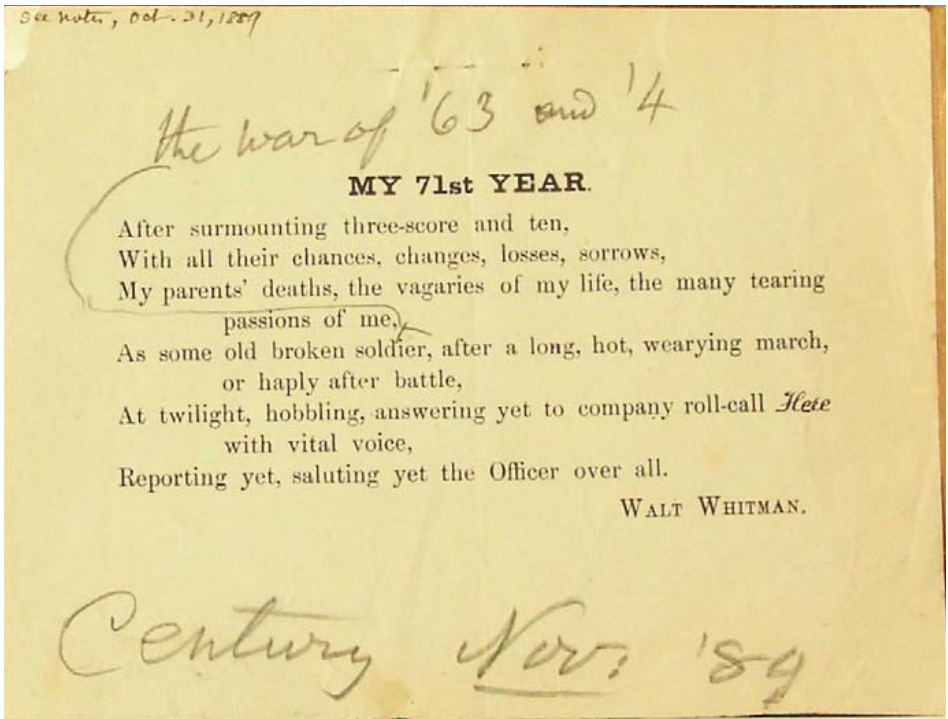 See notes, Oct. 31, 1889
the war of '63 and '4
MY 71st YEAR.
After surmounting three-score and ten,
With all their chances, changes, losses, sorrows,
My parents' deaths, the vagaries of my life, the many tearing
passions of me,
As some old broken soldier, after a long, hot, wearying march,
or haply after battle,
At twilight, hobbling, answering yet to company roll-call Here
with vital voice,
Reporting yet, saluting yet the Officer over all.
WALT WHITMAN.
Century Nov: '89